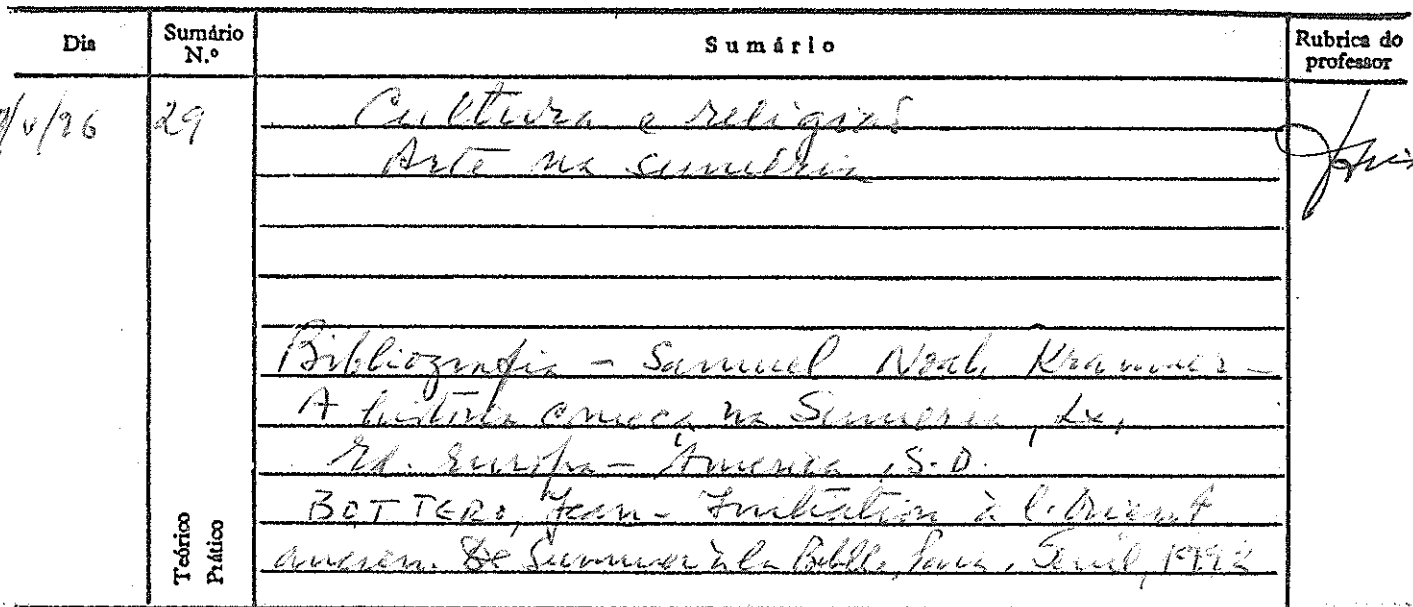 Dia Sumário N.º Sumário Rubrica do professor
/v/96 29 Cultura e religião
Arte na suméria
Bibliografia - Samuel Noah Krammer -
A história começa na Suméria, Lx,
Ed. Europa - América, S.D.
BOTTERO, Jean - Initiation à l'Orient
ancien. De Summer à la Bible, Paris, Seuil, 1992
Teórico
Prático